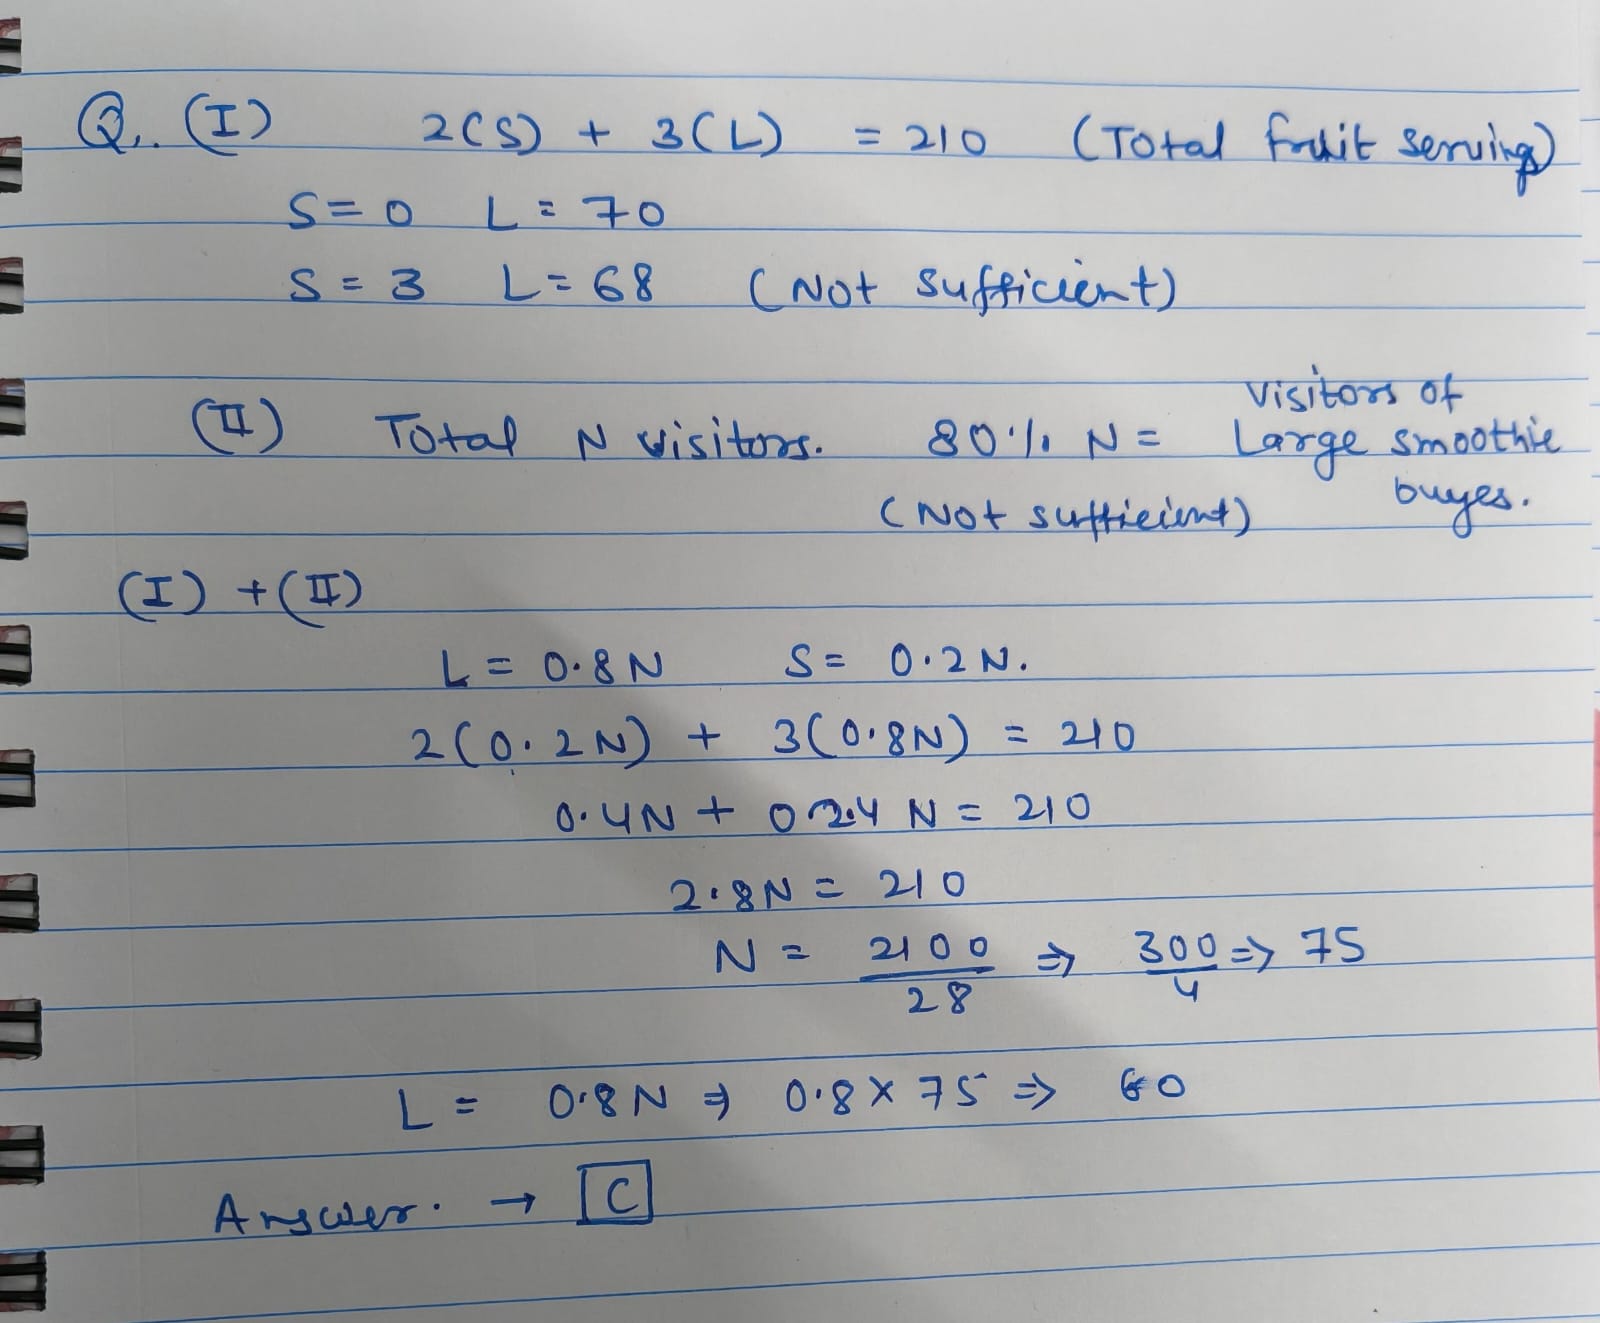 Q.. (I) 2(S) + 3(L) = 210 (Total fruit servings)
S = 0 L = 70
S = 3 L = 68 (Not sufficient)
(II) Total N visitors. 80% N = visitors of Large smoothie buyes.
(Not sufficient)
(I) + (II)
L = 0.8N S = 0.2N.
2(0.2N) + 3(0.8N) = 210
0.4N + 2.4 N = 210
2.8N = 210
N = 2100/28 ⇒ 300/4 ⇒ 75
L = 0.8N ⇒ 0.8 × 75 ⇒ 60
Answer. → C